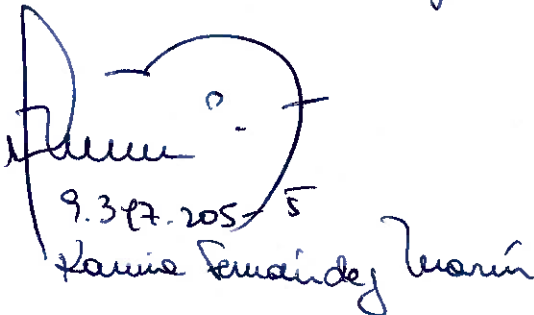 9.397.205-5
Karina Fernández Marín